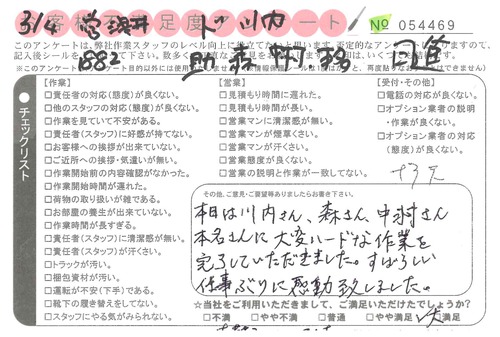 3/4
お客様不満足度アンケート
No 054469
このアンケートは、弊社作業スタッフのレベル向上に役立て
1882
チェックリスト
【作業】
□責任者の対応(態度)が良くない。
□他のスタッフの対応(態度)が良くない。
□作業を見ていて不安がある。
□責任者(スタッフ)に好感が持てない。
□お客様への挨拶が出来ていない。
□ご近所への挨拶・気遣いが無い。
□作業開始前の内容確認がなかった。
□作業開始時間が遅れた。
□荷物の取り扱いが雑である。
□お部屋の養生が出来ていない。
□作業時間が長すぎる。
□責任者(スタッフ)に清潔感が無い。
□責任者(スタッフ)が汗くさい。
□トラックが汚い。
□梱包資材が汚い。
□運転が不安(下手)である。
□靴下の履き替えをしてない。
□スタッフにやる気がみられない。
【営業】
□見積もり時間に遅れた。
□見積もり時間が長い。
□営業マンに清潔感が無い。
□営業マンが煙草くさい。
□営業マンが汗くさい。
□営業態度が良くない。
□営業の説明と作業が一致してない。
【受付・その他】
□電話の対応が良くない。
□オプション業者の説明・作業が良くない。
□オプション業者の対応(態度)が良くない。
その他、ご意見・ご要望等ありましたらお書き下さい。
本日は川内さん、森さん、中村さん
本名さんに大変ハードな作業を
完了していただきました。すばらしい
仕事ぶりに感動致しました。
☆当社をご利用いただきまして、ご満足いただけたでしょうか?
□不満 □やや不満 □普通 □やや満足 □満足